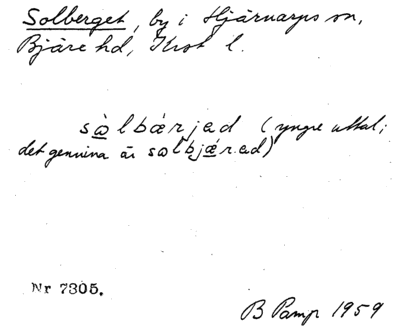 Solberget, by i Hjärnarps sn,
Bjäre hd, Krist l.
sὰlbærjad (yngre uttal;
det genuina är salbjǽrad)
Nr 7305.
B Pamp 1959